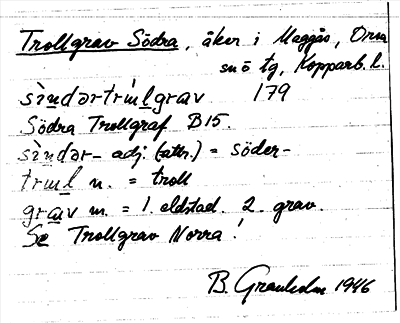 Trollgrav Södra, åker i Maggås, Orsa
sn ö tg, Kopparb. l.
sìndərtrìulgrav 179
Södra Trollgraf B15.
sìndər- adj. (attr.) = söder-
triul n. = troll
grav m. = 1. eldstad. 2. grav.
Se Trollgrav Norra!
B. Granholm 1946